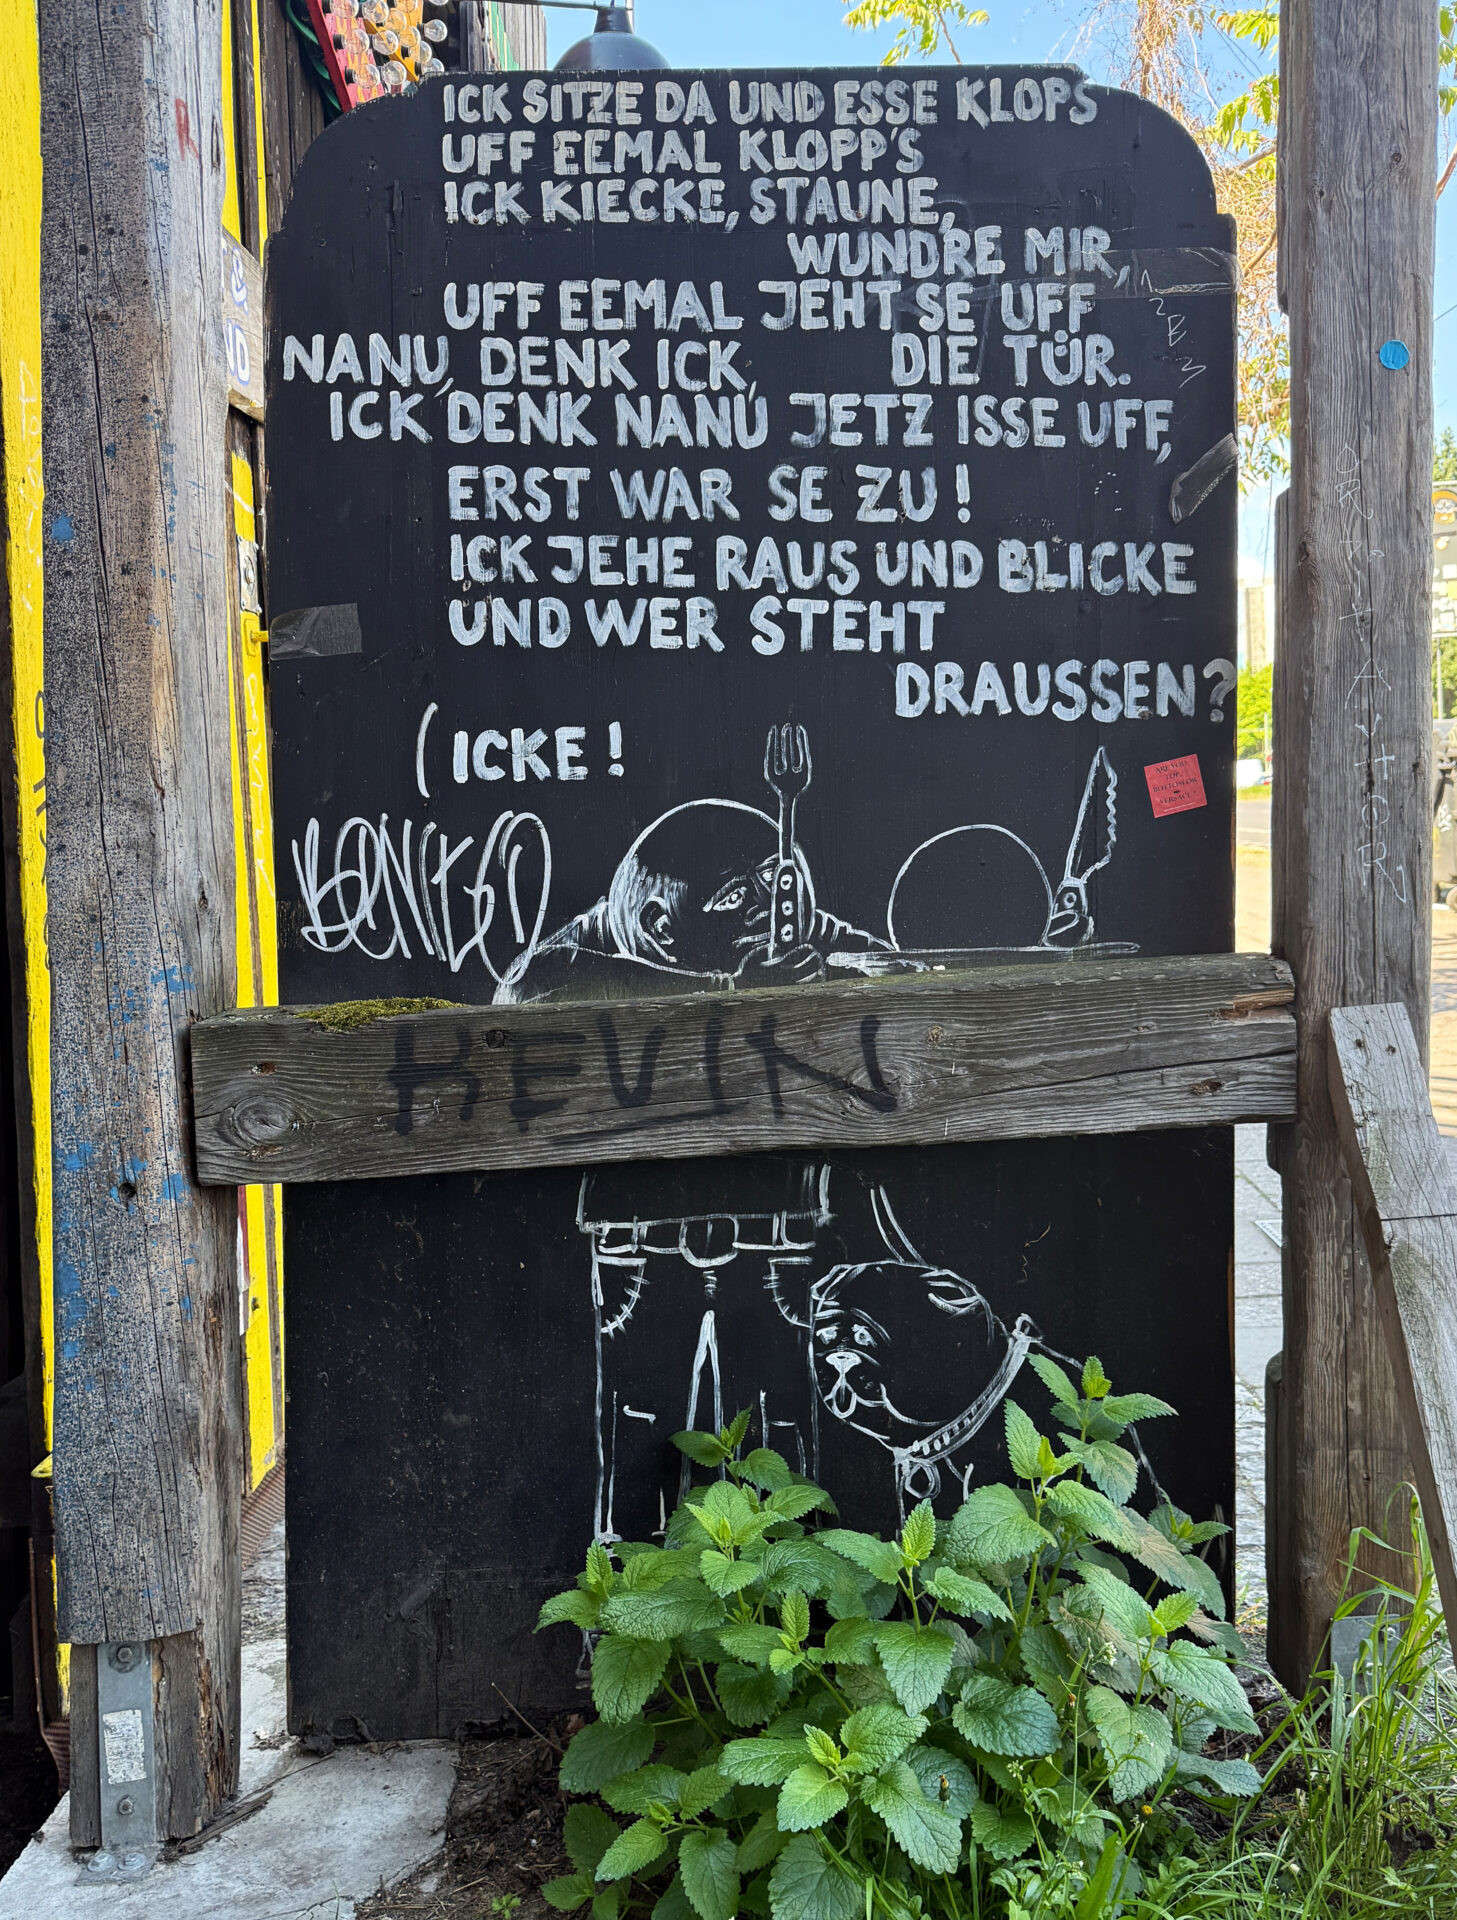 ICK SITZE DA UND ESSE KLOPS
UFF EEMAL KLOPP'S
ICK KIECKE, STAUNE,
WUNDRE MIR,
UFF EEMAL JEHT SE UFF
DIE TÜR.
NANU, DENK ICK,
ICK DENK NANU JETZ ISSE UFF,
ERST WAR SE ZU!
ICK JEHE RAUS UND BLICKE
UND WER STEHT
DRAUSSEN?
(ICKE!
ARE YOU
TOP,
BOTTOM OR
VERSACE?
KEVIN